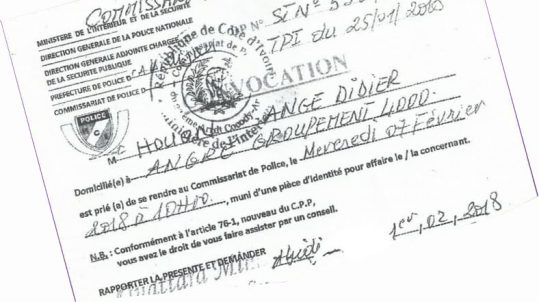 COMMISSA
MINISTERE DE L'INTERIEUR ET DE LA SECURITE
DIRECTION GENERALE DE LA POLICE NATIONALE
DIRECTION GENERALE ADJOINTE CHARGEE
DE LA SECURITE PUBLIQUE
PREFECTURE DE POLICE D
COMMISSARIAT DE POLICE D
N° SIN°
TPI du 25/01/2018
République de Côte d'Ivoire
VOCATION
POLICE
M HOU ANGE DIDIER
Domicilié(e) à ANGRE GROUPEMENT 4000
est prié (a) de se rendre au Commissariat de Police, le Mercredi 07 Février
2018 à 10H00, muni d'une pièce d'identité pour affaire le / la concernant.
N.B. : Conformément à l'article 76-1, nouveau du C.P.P,
vous avez le droit de vous faire assister par un conseil.
1er, 02, 2018
RAPPORTER LA PRESENTE ET DEMANDER